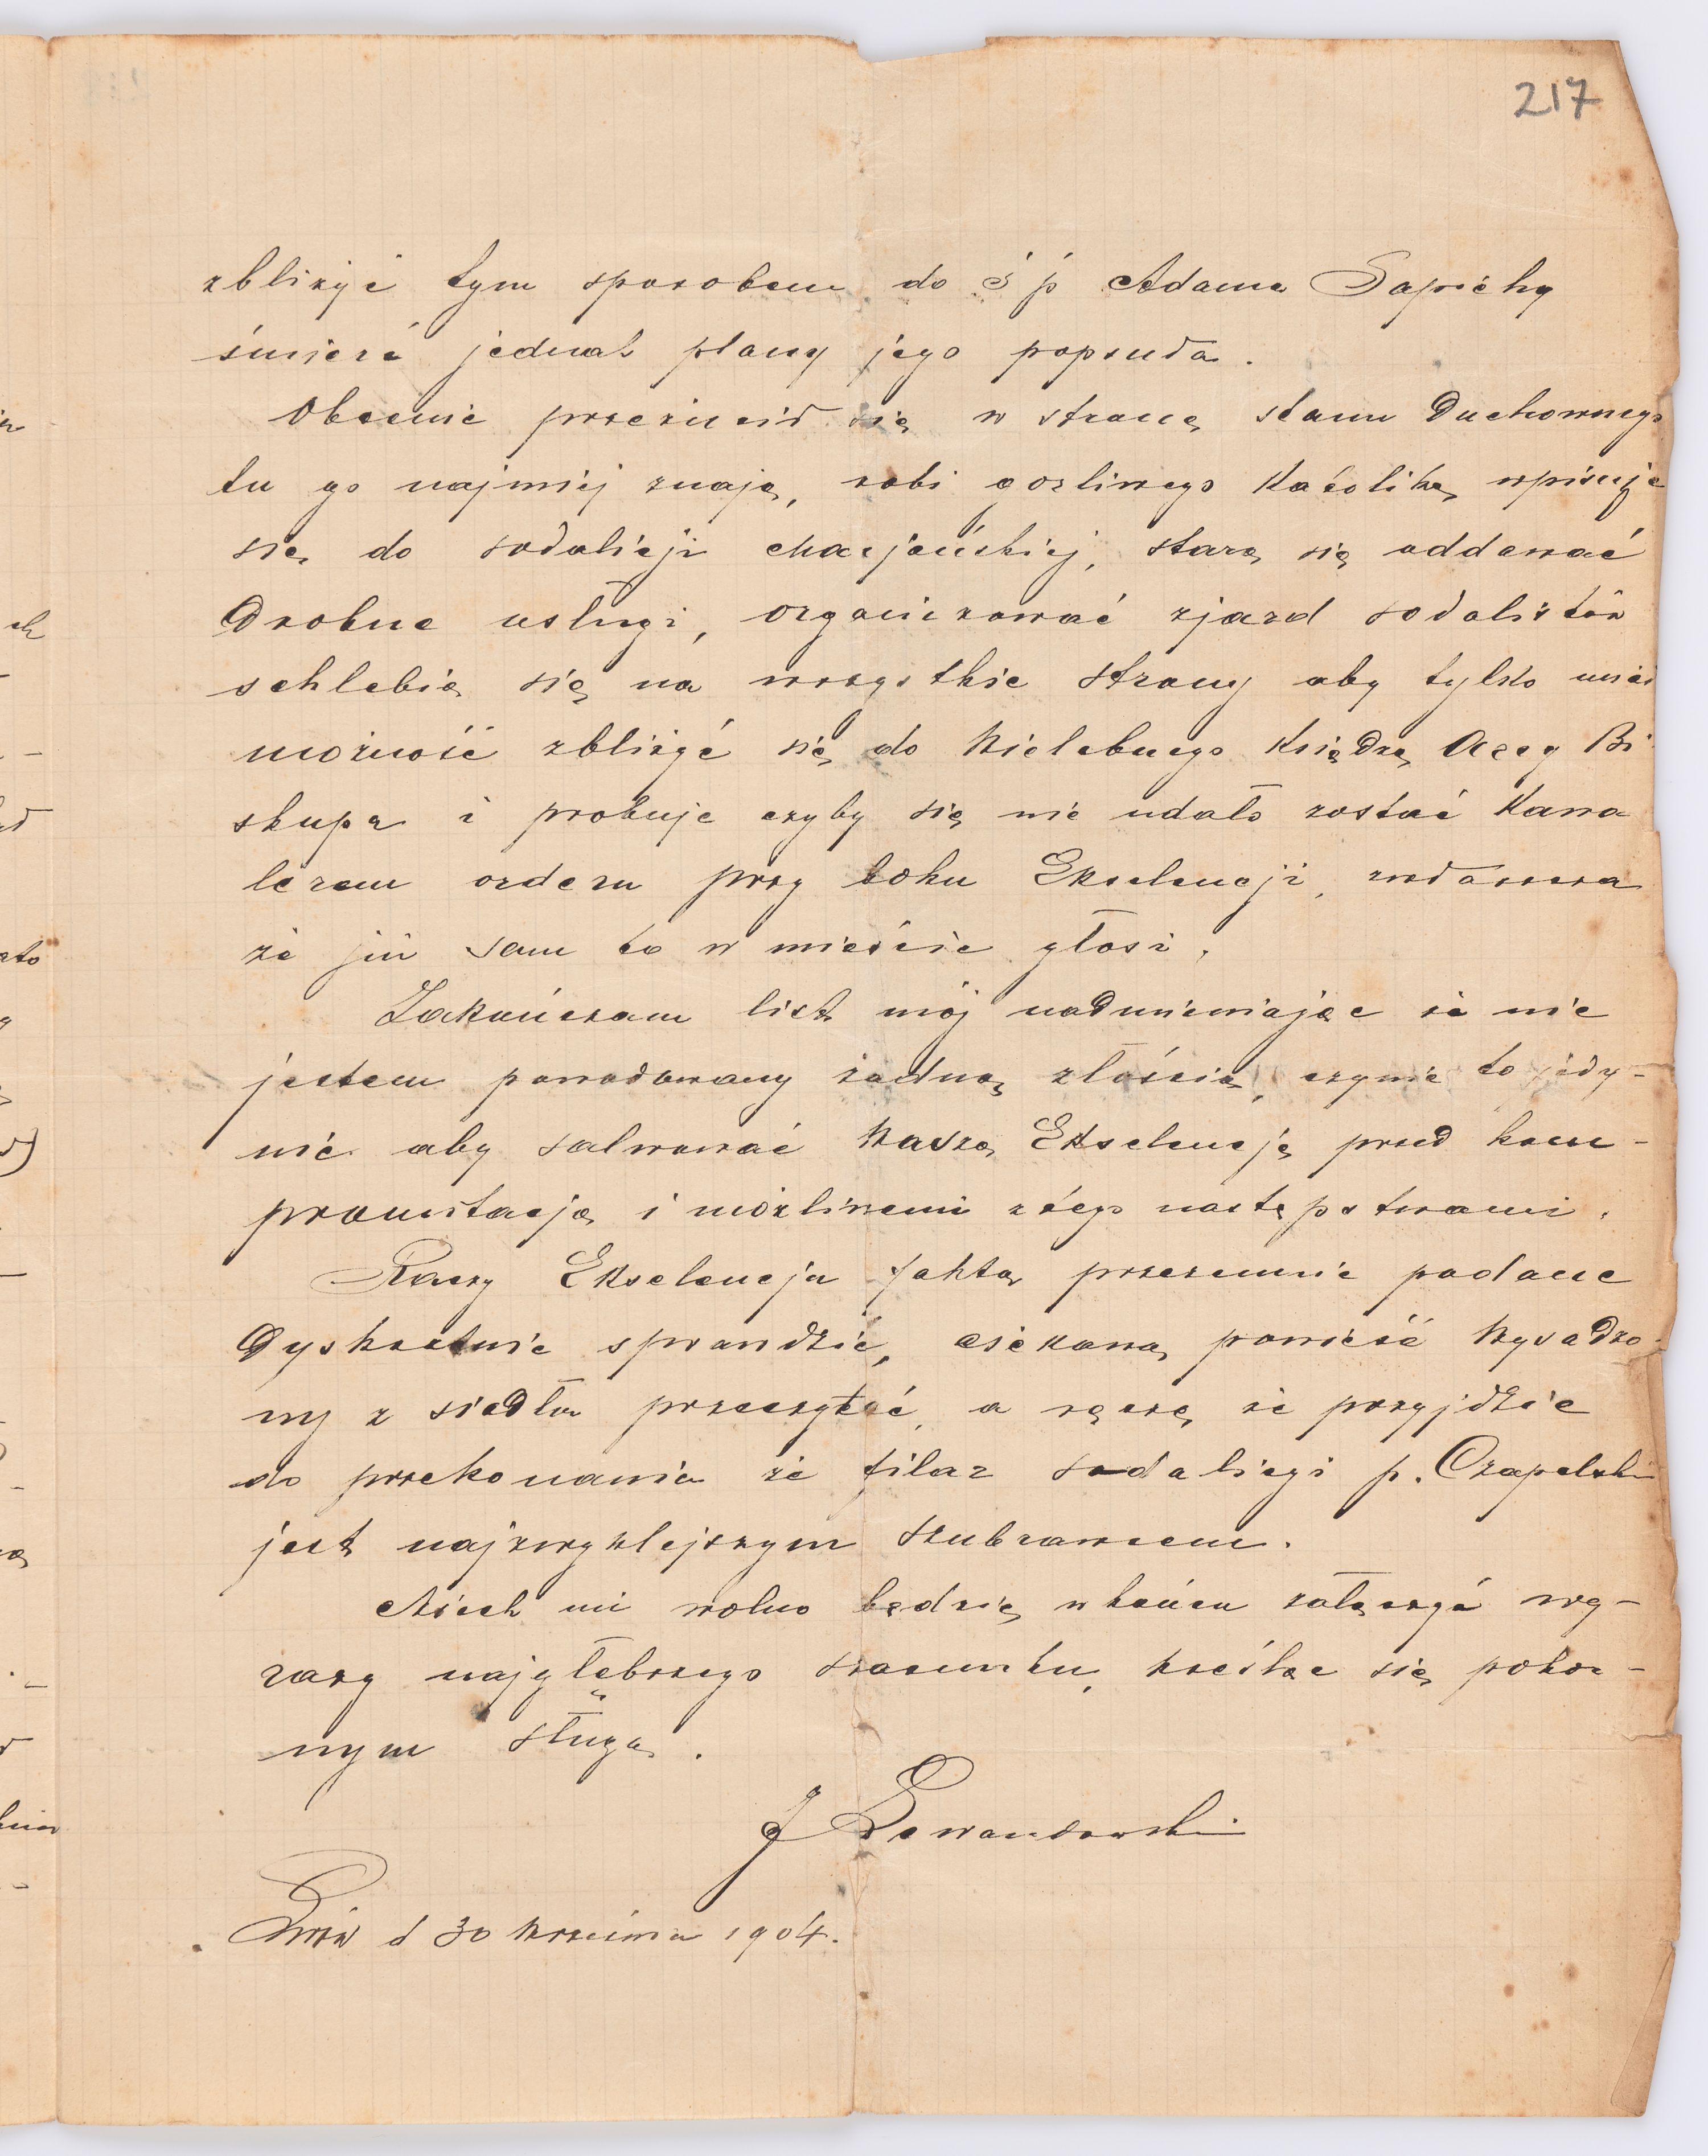 217
zbliżyć tym sposobem do ś p Adama Sapiehy
śmierć jednak plany jego popsuła.
Obecnie przerzucił się w stronę stanu Duchownego
tu go najmiej znają, robi gorliwego Katolika, wpisuje
się do sodalicji Marjańskiej, stara się oddawać
Drobne usługi, organizować zjazd sodalistów
schlebia się na wszystkie strony aby tylko mieć
możność zbliżyć się do Wielebnego Księdza Arcy Bi
skupa i probuje czyby się nie udało zostać Kawa
lerem orderu przy boku Ekselencji, zwłaszcza
że już sam to w mieście głosi.
Zakończam list mój nadmieniając że nie
jestem powodowany żadną złością, czynię to jedy-
nie aby salwować Waszą Ekselencję przed kom-
promitacją i możliwemi z tego następstwami.
Raczy Ekselencja fakta przezemnie podane
Dyskretnie sprawdzić, ciekawą powieść Wysadzo-
ny z siodła przeczytać, a ręczę że przyjdzie
do przekonania że filar sodalicyi p. Czapelski
jest najzwyklejszym szubrawcem.
Niech mi wolno będzie w końcu załączyć wy-
razy najgłębszego szacunku, kreśląc się pokor-
nym sługą.
J Lewandowski
Lwów d 30 Września 1904.